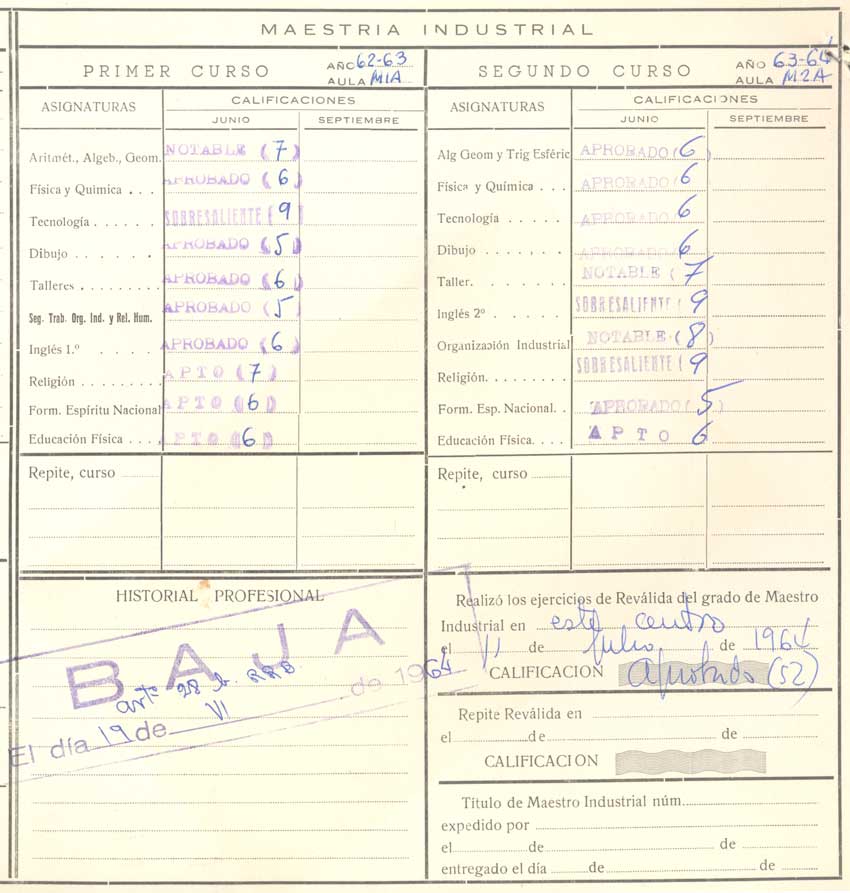 MAESTRIA INDUSTRIAL
PRIMER CURSO AÑO 62-63
AULA M1A
ASIGNATURAS CALIFICACIONES
JUNIO SEPTIEMBRE
Aritmét., Algeb., Geom. NOTABLE (7)
Física y Quimica . . . APROBADO (6)
Tecnología . . . . . . SOBRESALIENTE (9
Dibujo . . . . . . . APROBADO (5)
Talleres . . . . . . . . APROBADO (6)
Seg. Trab. Org. Ind. y Rel. Hum. APROBADO (5
Inglés 1.º . . . . . APROBADO (6)
Religión . . . . . . . . . APTO (7
Form. Espíritu Nacional APTO (6)
Educación Física . . . . APTO (6)
Repite, curso
HISTORIAL PROFESIONAL
BAJA
artº 28
El día 19 de VI de 1964
SEGUNDO CURSO AÑO 63-64
AULA M2A
ASIGNATURAS CALIFICACIONES
JUNIO SEPTIEMBRE
Alg Geom y Trig Esféric APROBADO (6)
Física y Química . . . APROBADO (6
Tecnología . . . . . APROBADO 6
Dibujo . . . . , . . APROBADO 6
Taller. . . . . . . . NOTABLE (7
Inglés 2º . . . . . SOBRESALIENTE (9
Organización Industrial NOTABLE (8)
Religión. . . . . . . . SOBRESALIENTE (9
Form. Esp. Nacional. . APROBADO (5)
Educación Física. . . . APTO 6
Repite, curso
Realizó los ejercicios de Reválida del grado de Maestro
Industrial en este centro
el 11 de Julio de 1964
CALIFICACIÓN Aprobado (52)
Repite Reválida en
el de de
CALIFICACION
Título de Maestro Industrial núm.
expedido por
el de de
entregado el día de de